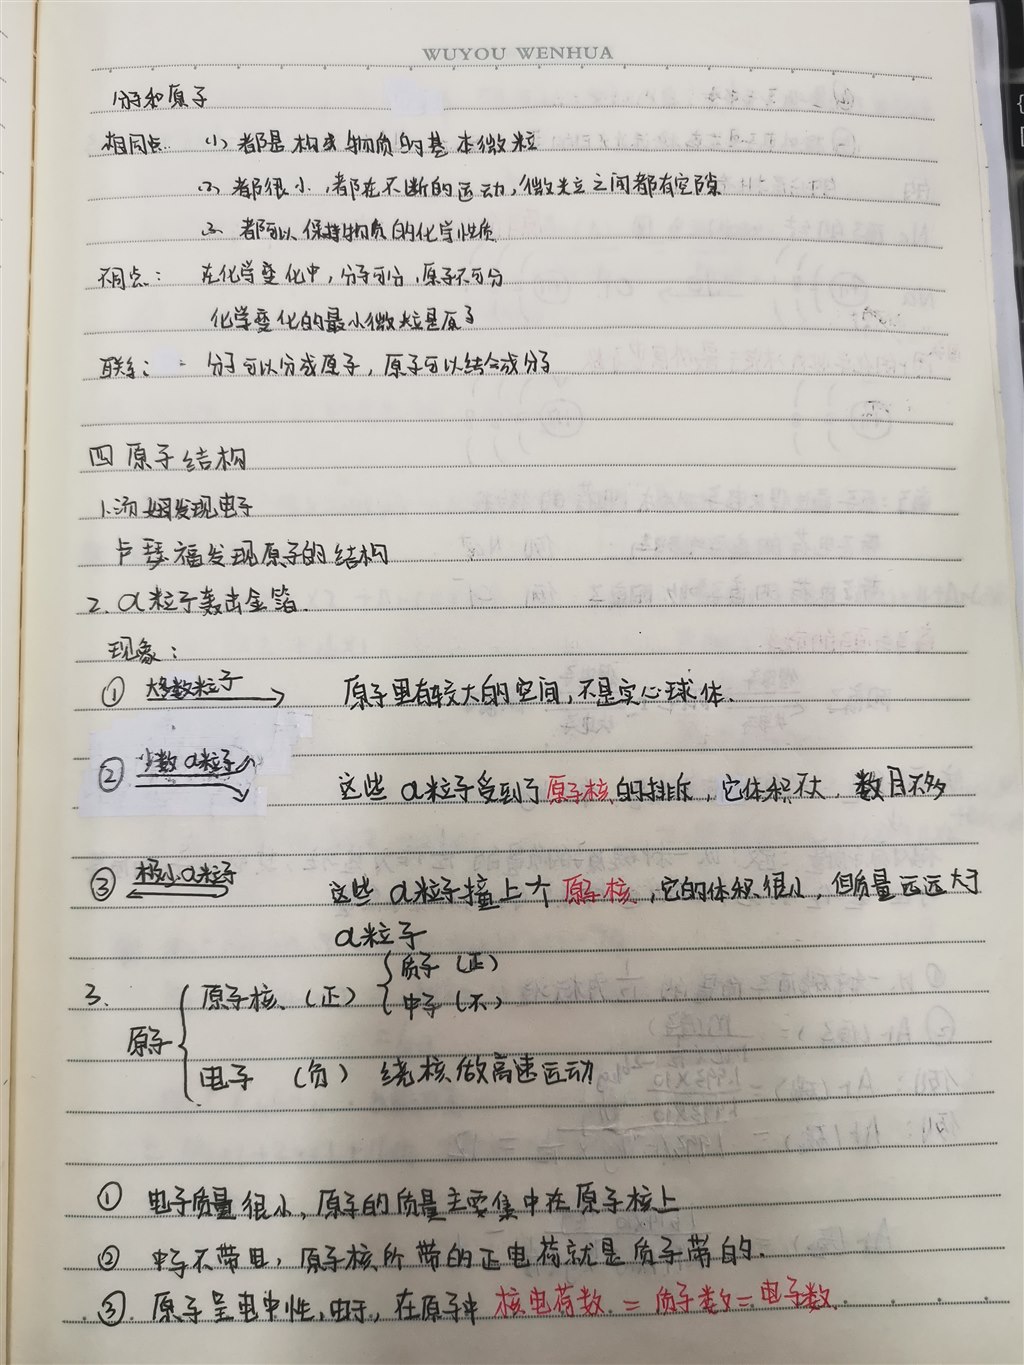 WUYOU WENHUA
分子和原子
相同点 (1) 都是构成物质的基本微粒
(2) 都很小,都在不断的运动,微粒之间都有空隙
3. 都可以保持物质的化学性质
不同点: 在化学变化中,分子可分,原子不可分
化学变化的最小微粒是原子
联系: 分子可以分成原子,原子可以结合成分子
四 原子结构
1.汤姆发现电子
卢瑟福发现原子的结构
2. α粒子轰击金箔.
现象:
① 大多数粒子 原子里有较大的空间,不是实心球体.
② 少数α粒子 这些α粒子受到了原子核的排斥,它体积不大,数目不多
③ 极小α粒子 这些α粒子撞上个原子核,它的体积很小,但质量远远大于
α粒子
3. 原子 原子核 (正) 质子 (正)
中子 (不)
电子 (负) 绕核做高速运动
① 电子质量很小,原子的质量主要集中在原子核上
② 中子不带电,原子核所带的正电荷就是质子带的.
③. 原子呈电中性,由于,在原子中 核电荷数 = 质子数 = 电子数